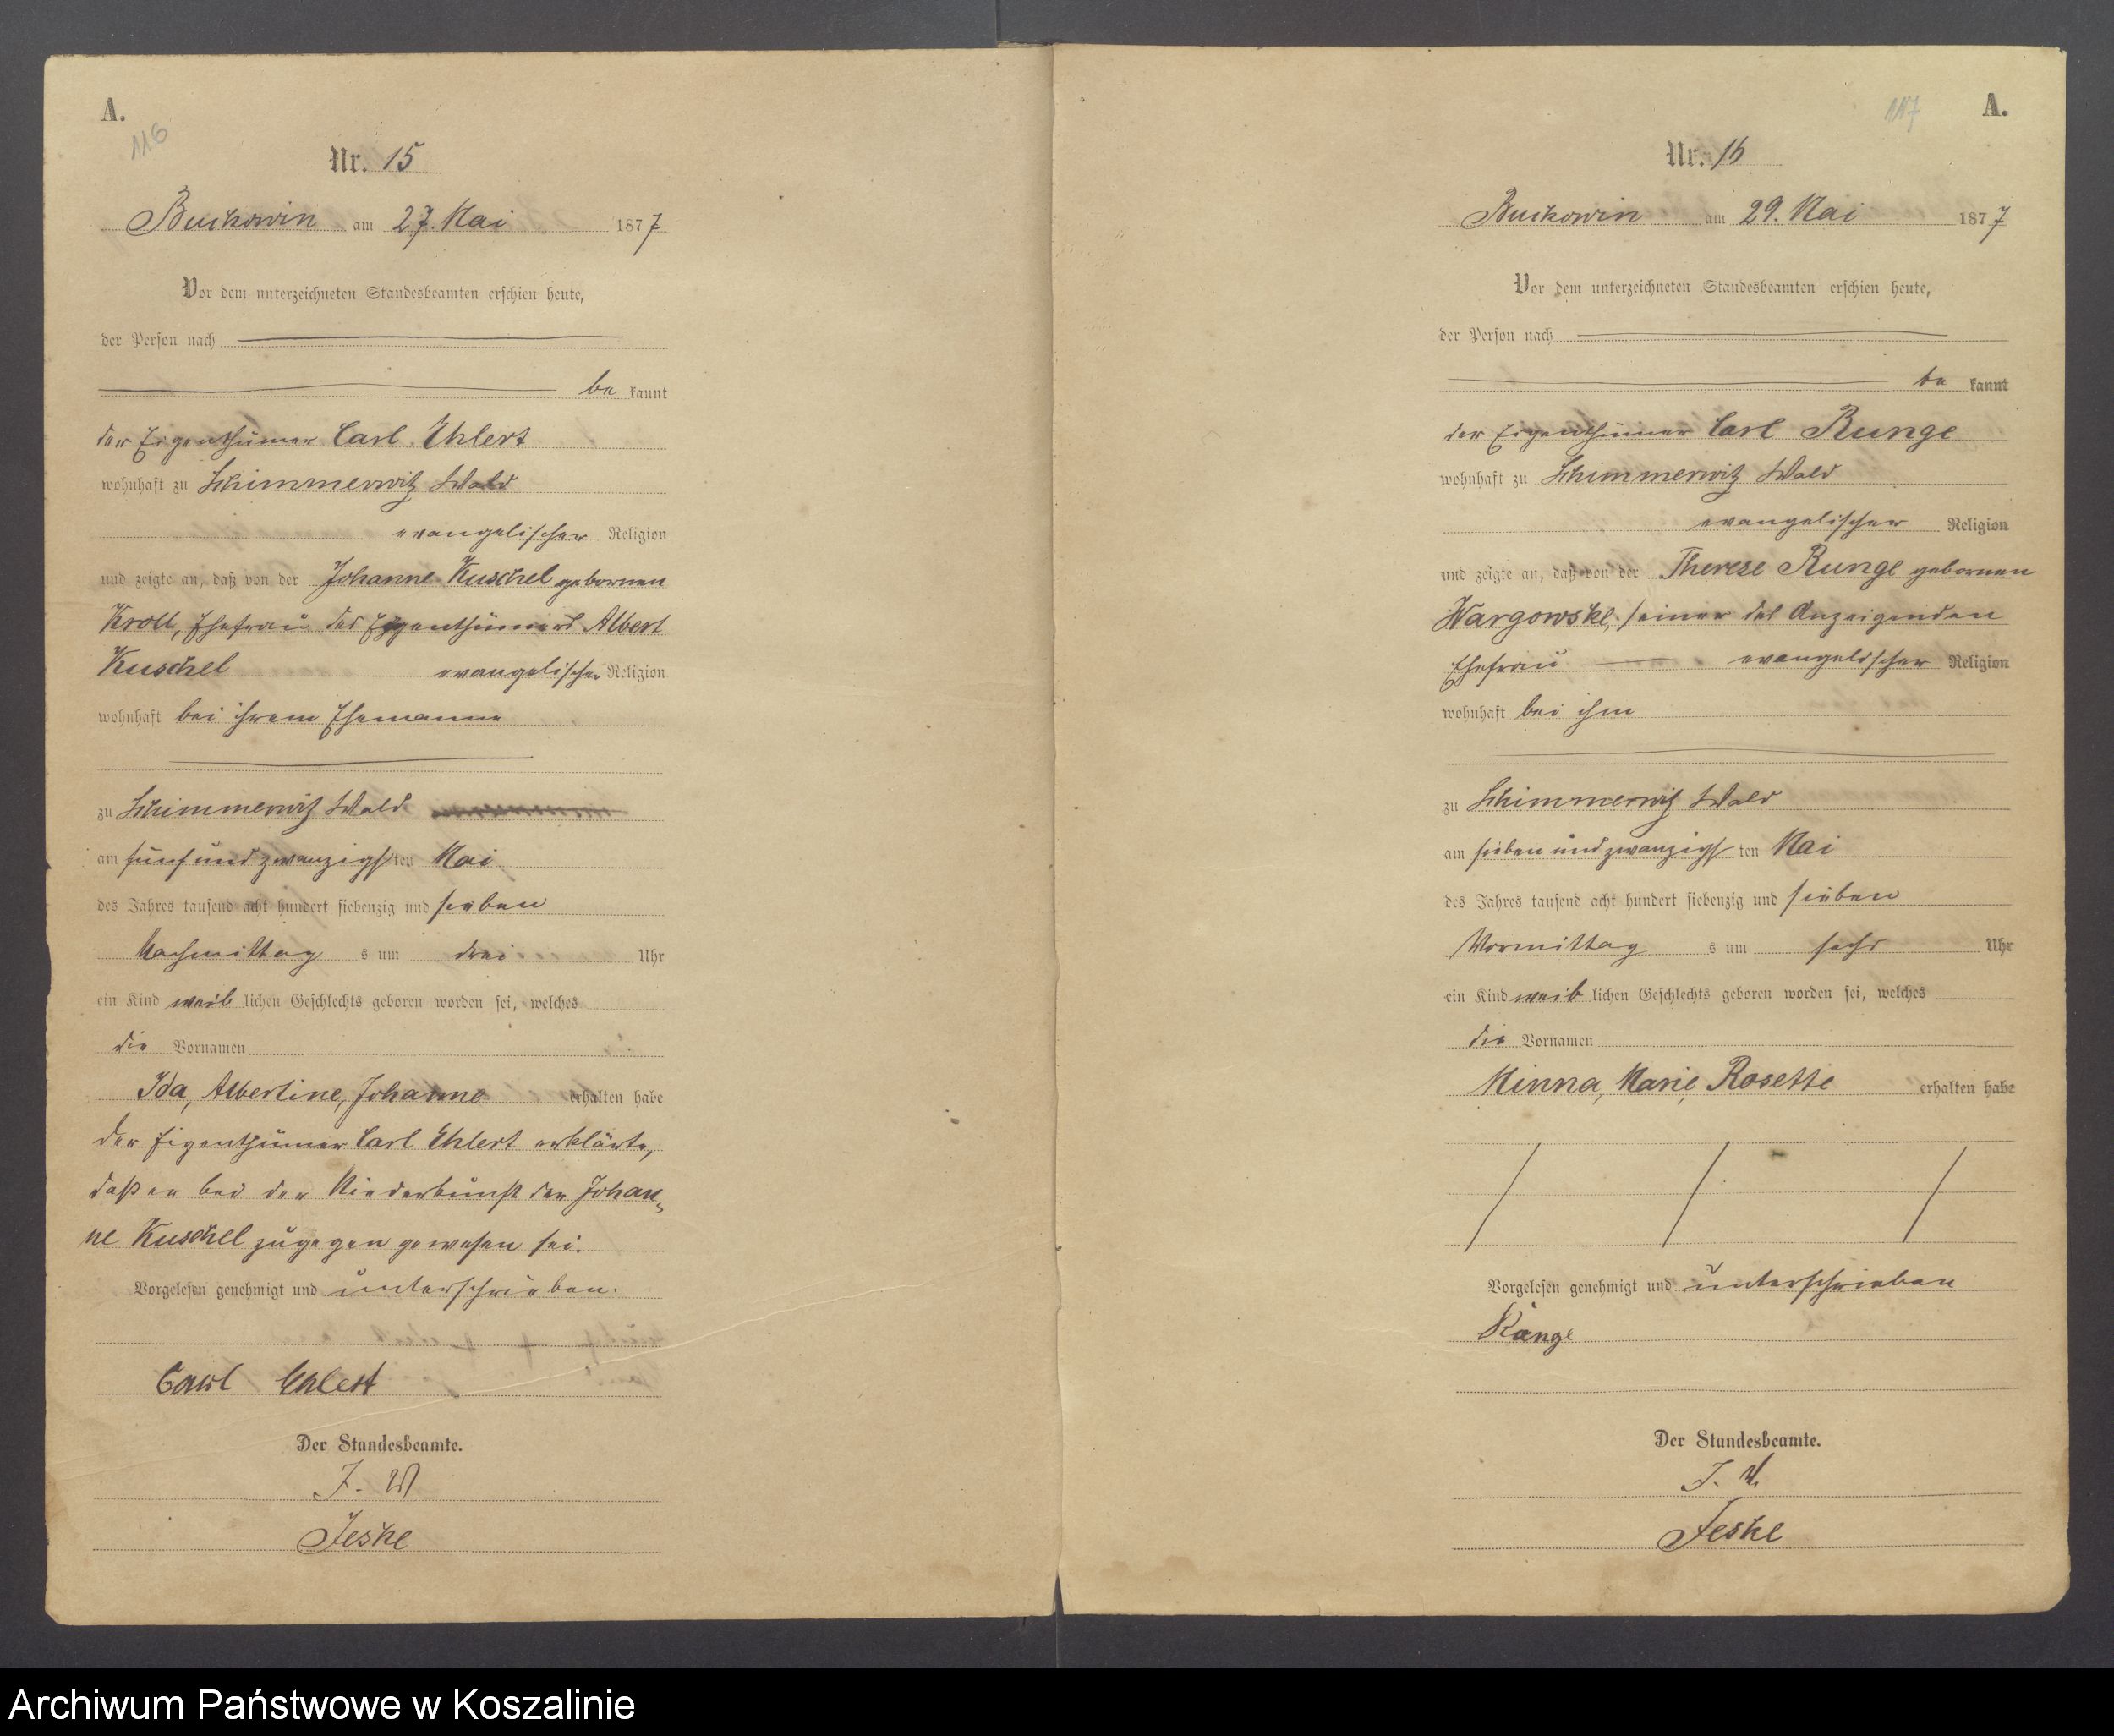 A.
116
Nr. 15
Buckowin am 27. Mai 1877
Vor dem unterzeichneten Standesbeamten erschien heute,
der Person nach
be kannt
der Eigenthümer Carl Ehlert
wohnhaft zu Schimmerwitz Wald
evangelischer Religion
und zeigte an, daß von der Johanne Kuschel gebornen
Kroll, Ehefrau des Eigenthümers Albert
Kuschel evangelischer Religion
wohnhaft bei ihrem Ehemanne
zu Schimmerwitz Wald
am fünf und zwanzigs ten Mai
des Jahres tausend acht hundert siebenzig und sieben
Nachmittag s um drei Uhr
ein Kind weib lichen Geschlechts geboren worden sei, welches
die Vornamen
Ida, Albertine, Johanne erhalten habe
Der Eigenthümer Carl Ehlert erklärte,
daß er bei der Niederkunft der Johan-
ne Kuschel zugegen gewesen sei.
Vorgelesen genehmigt und unterschrieben.
Carl Ehlert
Der Standesbeamte.
J. V.
Jeske
117
A.
Nr. 16
Buckowin am 29. Mai 1877
Vor dem unterzeichneten Standesbeamten erschien heute,
der Person nach
be kannt
der Eigenthümer Carl Runge
wohnhaft zu Schimmerwitz Wald
evangelischer Religion
und zeigte an, daß von der Therese Runge gebornen
Wargowske, seiner des Anzeigenden
Ehefrau evangelischer Religion
wohnhaft bei ihm
zu Schimmerwitz Wald
am sieben und zwanzigs ten Mai
des Jahres tausend acht hundert siebenzig und sieben
Vormittag s um sechs Uhr
ein Kind weib lichen Geschlechts geboren worden sei, welches
die Vornamen
Minna, Marie, Rosette erhalten habe
Vorgelesen genehmigt und unterschrieben
Runge
Der Standesbeamte.
J. V.
Jeske
Archiwum Państwowe w Koszalinie